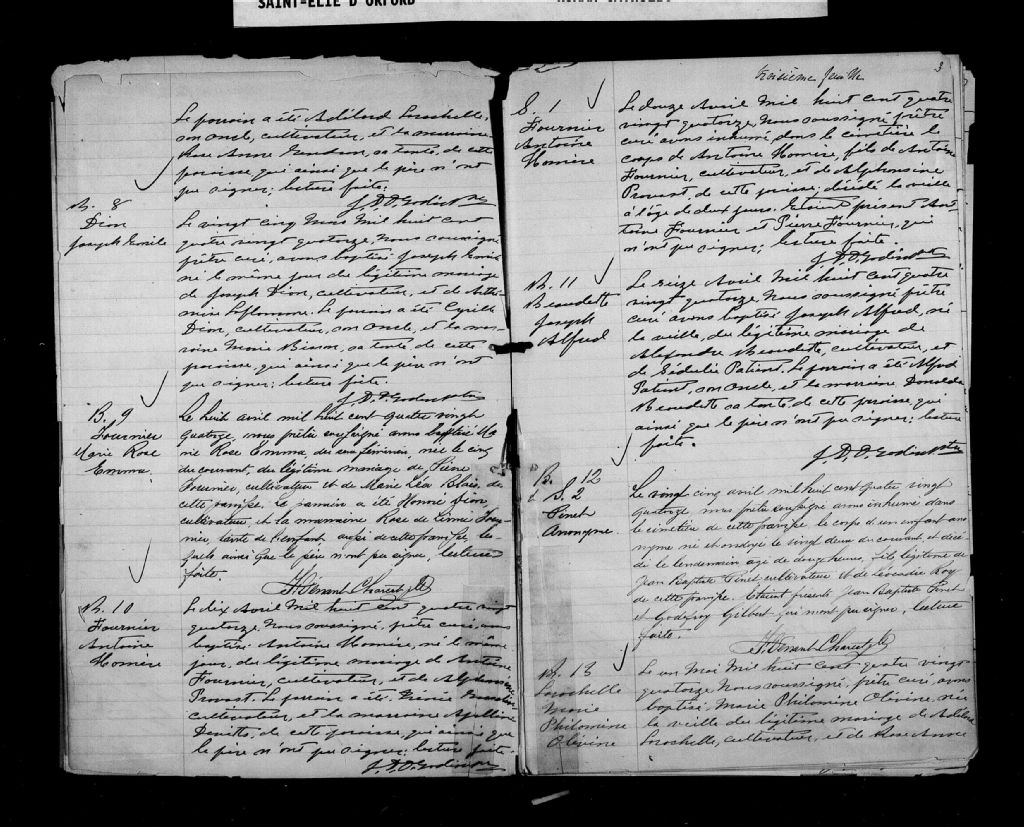 SAINT-ELIE D'ORFORD
Le parrain a été Adélard Larochelle,
son oncle, cultivateur, et la marraine
Rose Anna Gendron, sa tante, de cette
paroisse qui ainsi que le père n'ont
pu signer; lecture faite.
J. D. D. Godin Ptre
B. 8
Dion
Joseph Emile
Le vingt cinq Mars Mil huit cent
quatre vingt quatorze, Nous soussigné
prêtre curé, avons baptisé Joseph Emile
né le même jour du légitime mariage
de Joseph Dion, cultivateur, et de
Laflamme. Le parrain a été Cyrille
Dion, cultivateur, son oncle, et la mar-
raine Marie sa tante de cette
paroisse, qui ainsi que le père n'ont
pu signer; lecture faite.
J. D. D. Godin Ptre
B. 9
Fournier
Marie Rose
Emma.
Le huit avril mil huit cent quatre vingt
quatorze, nous prêtre soussigné avons baptisé Ma
rie Rose Emma, née le cinq
du courant, du légitime mariage de Pierre
Fournier, cultivateur et de Marie Léa Blais de
cette paroisse. Le parrain a été Honoré Dion
cultivateur, et la marraine Rose de Lima Four-
nier, tante de l'enfant aussi de cette paroisse, les-
quels ainsi que le père n'ont pu signer, lecture
faite.
H. Venant Charest Ptre
B. 10
Fournier
Antoine
Homère
Le dix Avril Mil huit cent quatre vingt
quatorze Nous soussigné, prêtre curé, avons
baptisé Antoine Homère, né le même
jour, du légitime mariage de Antoine
Fournier, cultivateur, et de Alphonsine
Provost. Le parrain a été
cultivateur, et la marraine Apolline
de cette paroisse, qui ainsi que
le père n'ont pu signer; lecture faite.
J. D. D. Godin Ptre
troisième feuille
3
S. 1
Fournier
Antoine
Homère
Le douze Avril Mil huit cent quatre
vingt quatorze, Nous soussigné prêtre
curé avons inhumé dans le cimetière le
corps de Antoine Homère, fils de Antoine
Fournier, cultivateur, et de Alphonsine
Provost de cette paroisse; décédé la veille
à l'âge de deux jours. Etaient présent An-
toine Fournier et Pierre Fournier, qui
n'ont pu signer; lecture faite.
J. D. D. Godin Ptre
B. 11
Beaudette
Joseph
Alfred
Le seize Avril Mil huit cent quatre
vingt quatorze Nous soussigné prêtre
curé avons baptisé Joseph Alfred, né
la veille, du légitime mariage de
Alexandre Beaudette, cultivateur, et
de Sédulie Patient. Le parrain a été Alfred
Patient, son oncle, et la marraine
Beaudette sa tante, de cette paroisse, qui
ainsi que le père n'ont pu signer; lecture
faite.
J. D. D. Godin Ptre
B. 12
& S. 2
Pinet
Anonyme
Le vingt cinq avril mil huit cent quatre vingt
quatorze nous prêtre soussigné avons inhumé dans
le cimetière de cette paroisse le corps d'un enfant ano
nyme né et ondoyé le vingt deux du courant et décé-
dé le lendemain agé de douze heures, fils légitime de
Jean Baptiste Pinet, cultivateur et de Léocadie Roy
de cette paroisse. Etaient présents Jean Baptiste Pinet
et Godfroy Gilbert qui n'ont pu signer, lecture
faite.
H. Venant Charest Ptre
B. 13
Larochelle
Marie
Philomine
Olivine
Le un Mai Mil huit cent quatre vingt
quatorze Nous soussigné, prêtre curé, avons
baptisé Marie Philomine Olivine née
la veille du légitime mariage de Adélard
Larochelle, cultivateur, et de Rose Anna